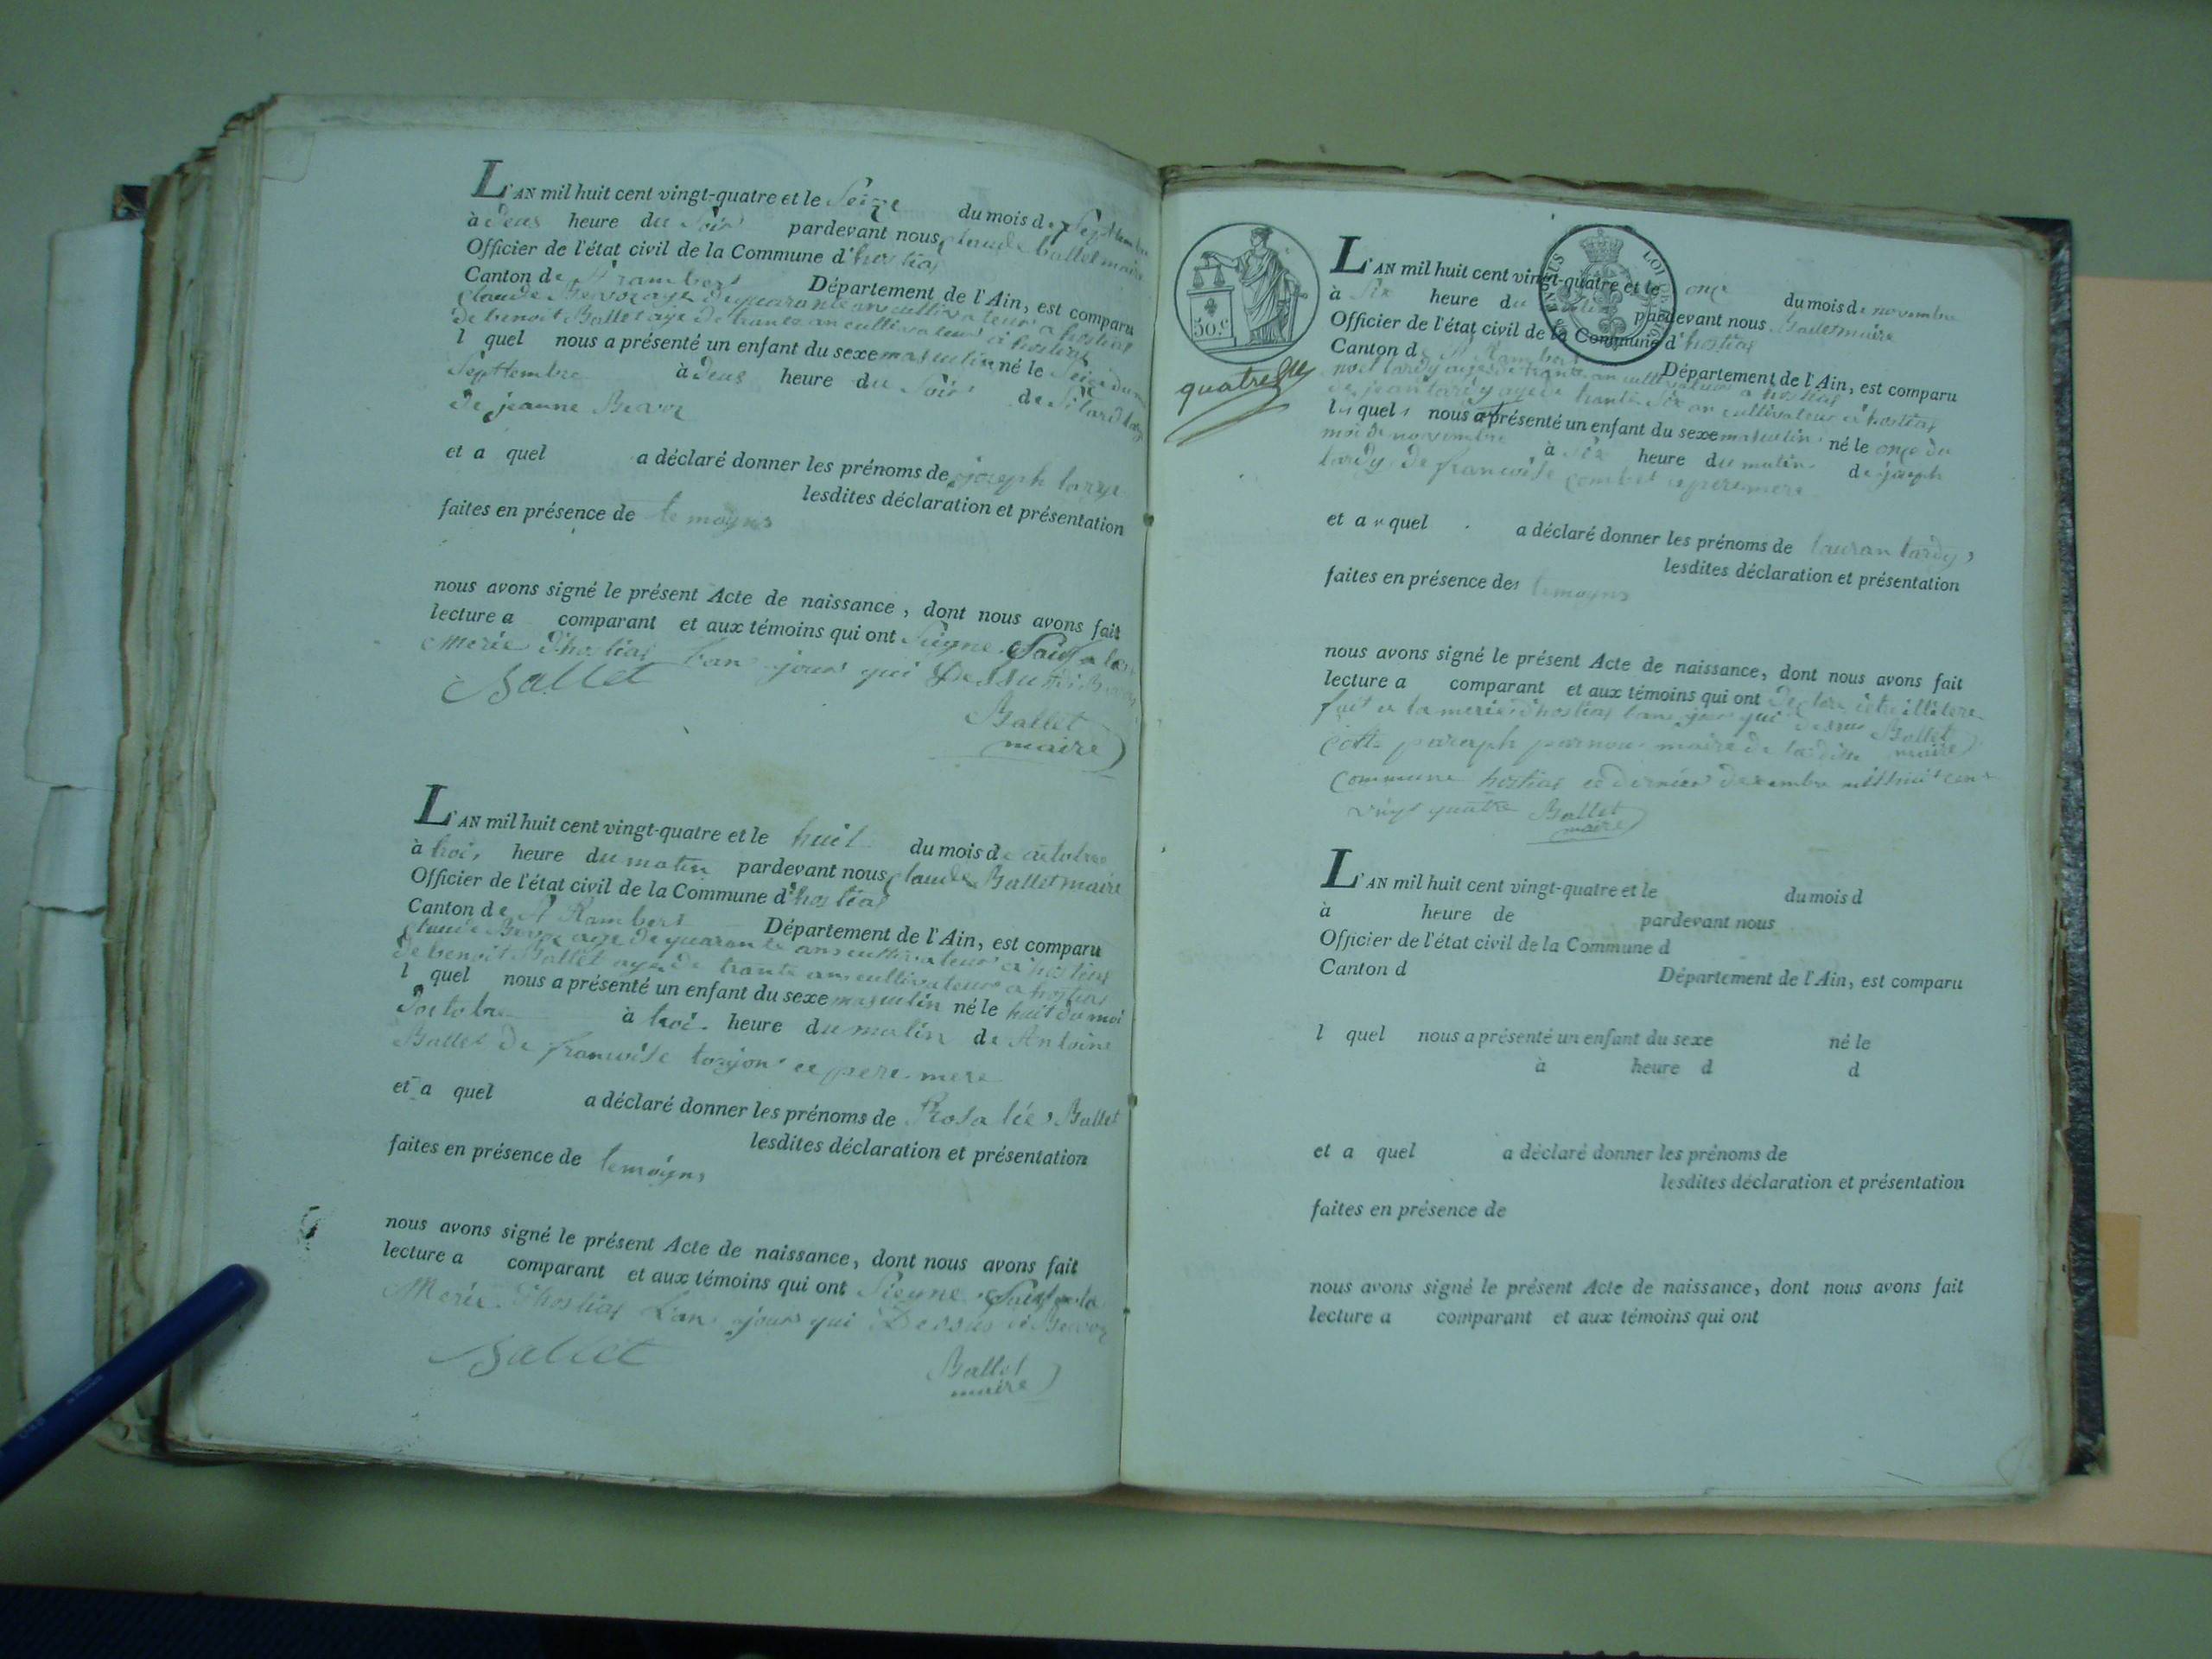 L'AN mil huit cent vingt-quatre et le Seize du mois de Septembre
à deus heure du Soir pardevant nous Claude Ballet maire
Officier de l'état civil de la Commune d'hostias
Canton de St rambert Département de l'Ain, est comparu
Claude Bevoz age de quarante ans cultivateur a hostias
de benoit Ballet age de trante an cultivateur a hostias
l quel nous a présenté un enfant du sexe masculin né le Seize du moi
Septtembre à deus heure du Soir de
de jeanne Bevoz
et a quel a déclaré donner les prénoms de joseph
lesdites déclaration et présentation
faites en présence de temoyns
nous avons signé le présent Acte de naissance, dont nous avons fait
lecture a comparant et aux témoins qui ont Signe fait a la
Merie d'hostias l'an jour qui Dessus
Ballet
Ballet
maire
L'AN mil huit cent vingt-quatre et le huit du mois de octobre
à troi heure du matin pardevant nous Claude Ballet maire
Officier de l'état civil de la Commune d'hostias
Canton de St Rambert Département de l'Ain, est comparu
Claude Bevoz age de quarante ans cultivateur a hostias
de benoit Ballet age de trante ans cultivateur a hostias
l quel nous a présenté un enfant du sexe masculin né le huit du moi
d'octobre à troi heure du matin de Antoine
Ballet de francoise ce pere mere
et a quel a déclaré donner les prénoms de Rosalie Ballet
lesdites déclaration et présentation
faites en présence de temoyns
nous avons signé le présent Acte de naissance, dont nous avons fait
lecture a comparant et aux témoins qui ont Signe fait a la
Merie d'hostias l'an jour qui Dessus Bevoz
Ballet
Ballet
maire
50.c
quatre
L'AN mil huit cent vingt-quatre et le onze du mois de novembre
à Six heure du matin pardevant nous Ballet maire
Officier de l'état civil de la Commune d'hostias
Canton de St Rambert Département de l'Ain, est comparu
noel tardy age de trante an cultivateur a hostias
de jean tardy age de trante Six an cultivateur a hostias
les quels nous a présenté un enfant du sexe masculin né le onze du
moi de novembre à Six heure du matin de joseph
tardy de francoise combet ce pere mere
et a quel a déclaré donner les prénoms de lauran tardy
lesdites déclaration et présentation
faites en présence des temoyns
nous avons signé le présent Acte de naissance, dont nous avons fait
lecture a comparant et aux témoins qui ont
fait a la merie d'hostias l'an jour qui dessus Ballet
maire
Cotte paraph par nous maire de la ditte
Commune hostias ce dernier dexembre mil huit cent
vingt quatre Ballet
maire
L'AN mil huit cent vingt-quatre et le du mois d
à heure de pardevant nous
Officier de l'état civil de la Commune d
Canton d Département de l'Ain, est comparu
l quel nous a présenté un enfant du sexe né le
à heure d d
et a quel a déclaré donner les prénoms de
lesdites déclaration et présentation
faites en présence de
nous avons signé le présent Acte de naissance, dont nous avons fait
lecture a comparant et aux témoins qui ont